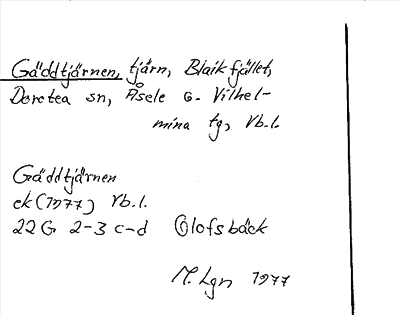 Gäddtjärnen, tjärn, Blaikfjället,
Dorotea sn, Åsele o. Vilhel-
mina tg, Vb.l.
Gäddtjärnen
ek (1977) Vb.l.
22G 2-3 c-d Olofsbäck
M. Lgn 1977